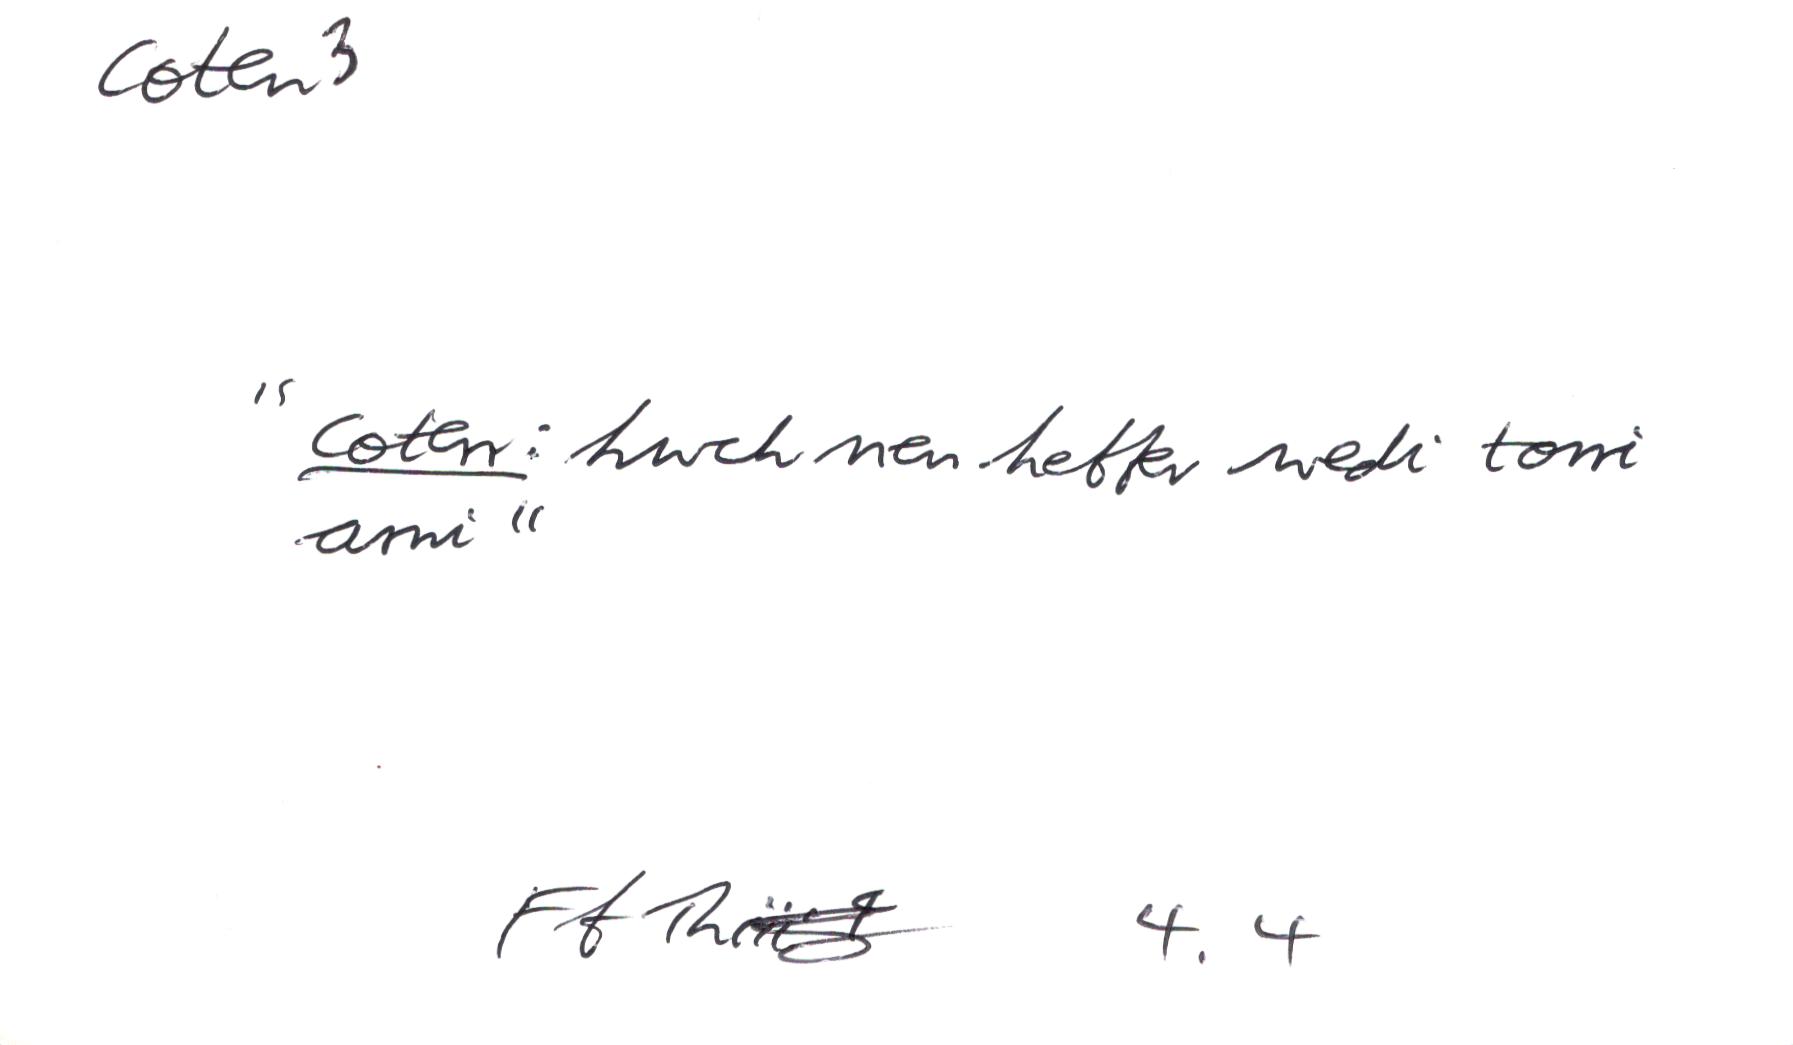 Coten3
"Coten: hwch neu heffer wedi torri
arni"
Ff Th 4.4